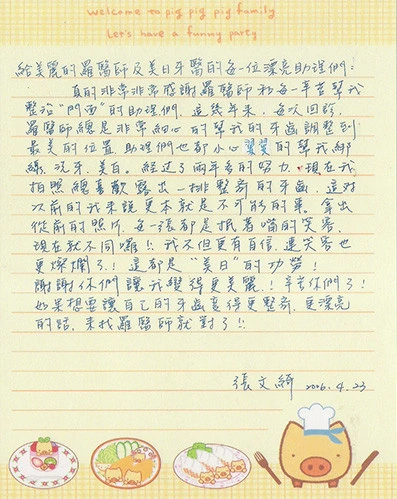 welcome to pig pig pig family
Let's have a funny party
給美麗的羅醫師及美日牙醫的每一位漂亮助理們：
真的非常非常感謝羅醫師和每一辛苦幫我
整治"門面"的助理們，這幾年來，每次回診，
羅醫師總是非常細心的幫我的牙齒調整到
最美的位置，助理們也都小心翼翼的幫我綁
線、洗牙、美白。經過了兩年多的努力，現在我
拍照總喜歡露出一排整齊的牙齒，這對
以前的我來說更本就是不可能的事。拿出
從前的照片，每一張都是抿著嘴的笑容，
現在就不同囉!! 我不但更有自信，連笑容也
更燦爛了! 這都是"美日"的功勞!
謝謝你們讓我變得更美麗!! 辛苦你們了!
如果想要讓自己的牙齒變得更整齊、更漂亮
的話，來找羅醫師就對了!!
張文綺 2006.4.23